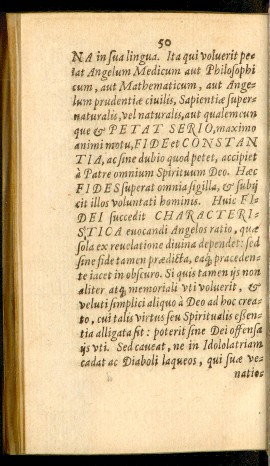 50
NA in sua lingua. Ita qui voluerit pe-
tat Angelum Medicum aut Philosophi
cum, aut Mathematicum, aut Ange-
lum prudentiæ ciuilis, Sapientiæ super-
naturalis, vel naturalis, aut qualemcun
que & PETAT SERIO, maximo
animi motu, FIDE et CONSTAN
TIA, ac sine dubio quod petet, accipiet
à Patre omnium Spirituum Deo. Hæc
FIDES superat omnia sigilla, & subij
cit illos voluntati hominis. Huic FI-
DEI succedit CHARACTERI-
STICA euocandi Angelos ratio, quæ
sola ex reuelatione diuina dependet: sed
sine fide tamen prædicta, eaq; præceden-
te iacet in obscuro. Si quis tamen ijs non
aliter atq; memoriali vti voluerit, &
veluti simplici aliquo à Deo ad hoc crea-
to, cui talis virtus seu Spiritualis essen-
tia alligata sit: poterit sine Dei offensa
ijs vti. Sed caueat, ne in Idololatriam
cadat ac Diaboli laqueos, qui suæ ve-
natio-